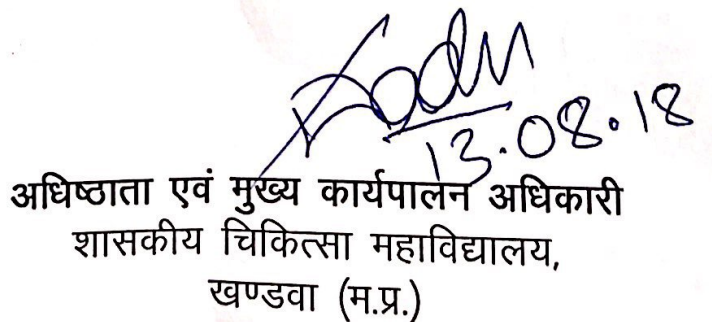 13.08.18
अधिष्ठाता एवं मुख्य कार्यपालन अधिकारी
शासकीय चिकित्सा महाविद्यालय,
खण्डवा (म.प्र.)